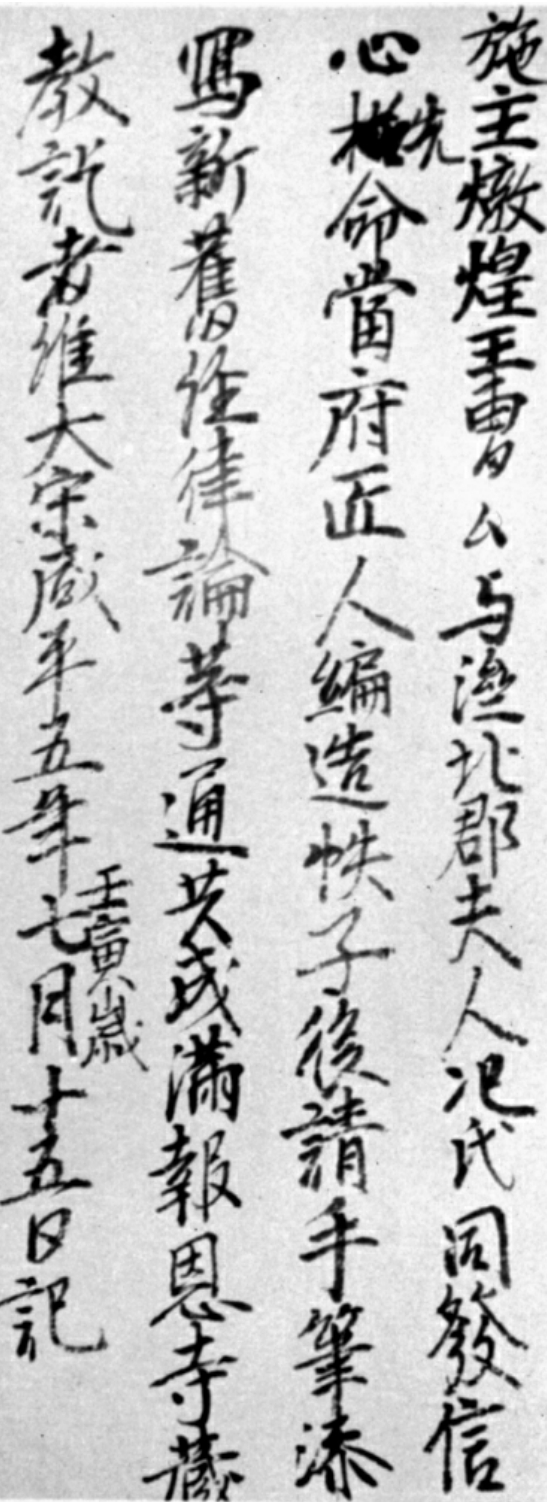 施主燉煌王曹厶与濟北郡夫人氾氏同發信
心先命當府匠人編造帙子後請手筆添
寫新舊經律論等通共成滿報恩寺藏
教訖者維大宋咸平五年壬寅歲七月十五日記